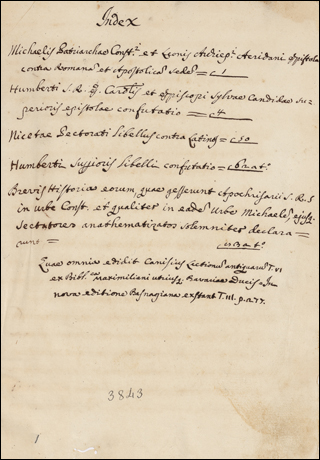 Index
Michaelis Patriarchae Constᵗ. et Leonis Archiepⁱ. Acridani epistola
contra Romanā et Apostolicā Sedē = c. 1
Humberti S. R. E. Cardlis et Episcopi Sylvae Candidae Su-
perioris epistolae confutatio = c. 4
Nicetae Pectorati Libellus contra Latinos = c. 50
Humberti Superioris Libelli confutatio = c. 62 a tᵒ.
Brevis Historia eorum, quae gesserunt Apochrisarii S. R. S
in urbe Const. et qualiter in eadē Urbe Michaelē, ejusq.
Sectatores anathematizatos solemniter declara=
runt = c. 132 a tᵒ.
Quae omnia edidit Canisius Lectionū antiquarū T. VI
ex Bibl. Maximiliani utriusq. Bavariae Ducis = In
nova editione Basnagiana exstant T. III. p. a. 77.
3843
1